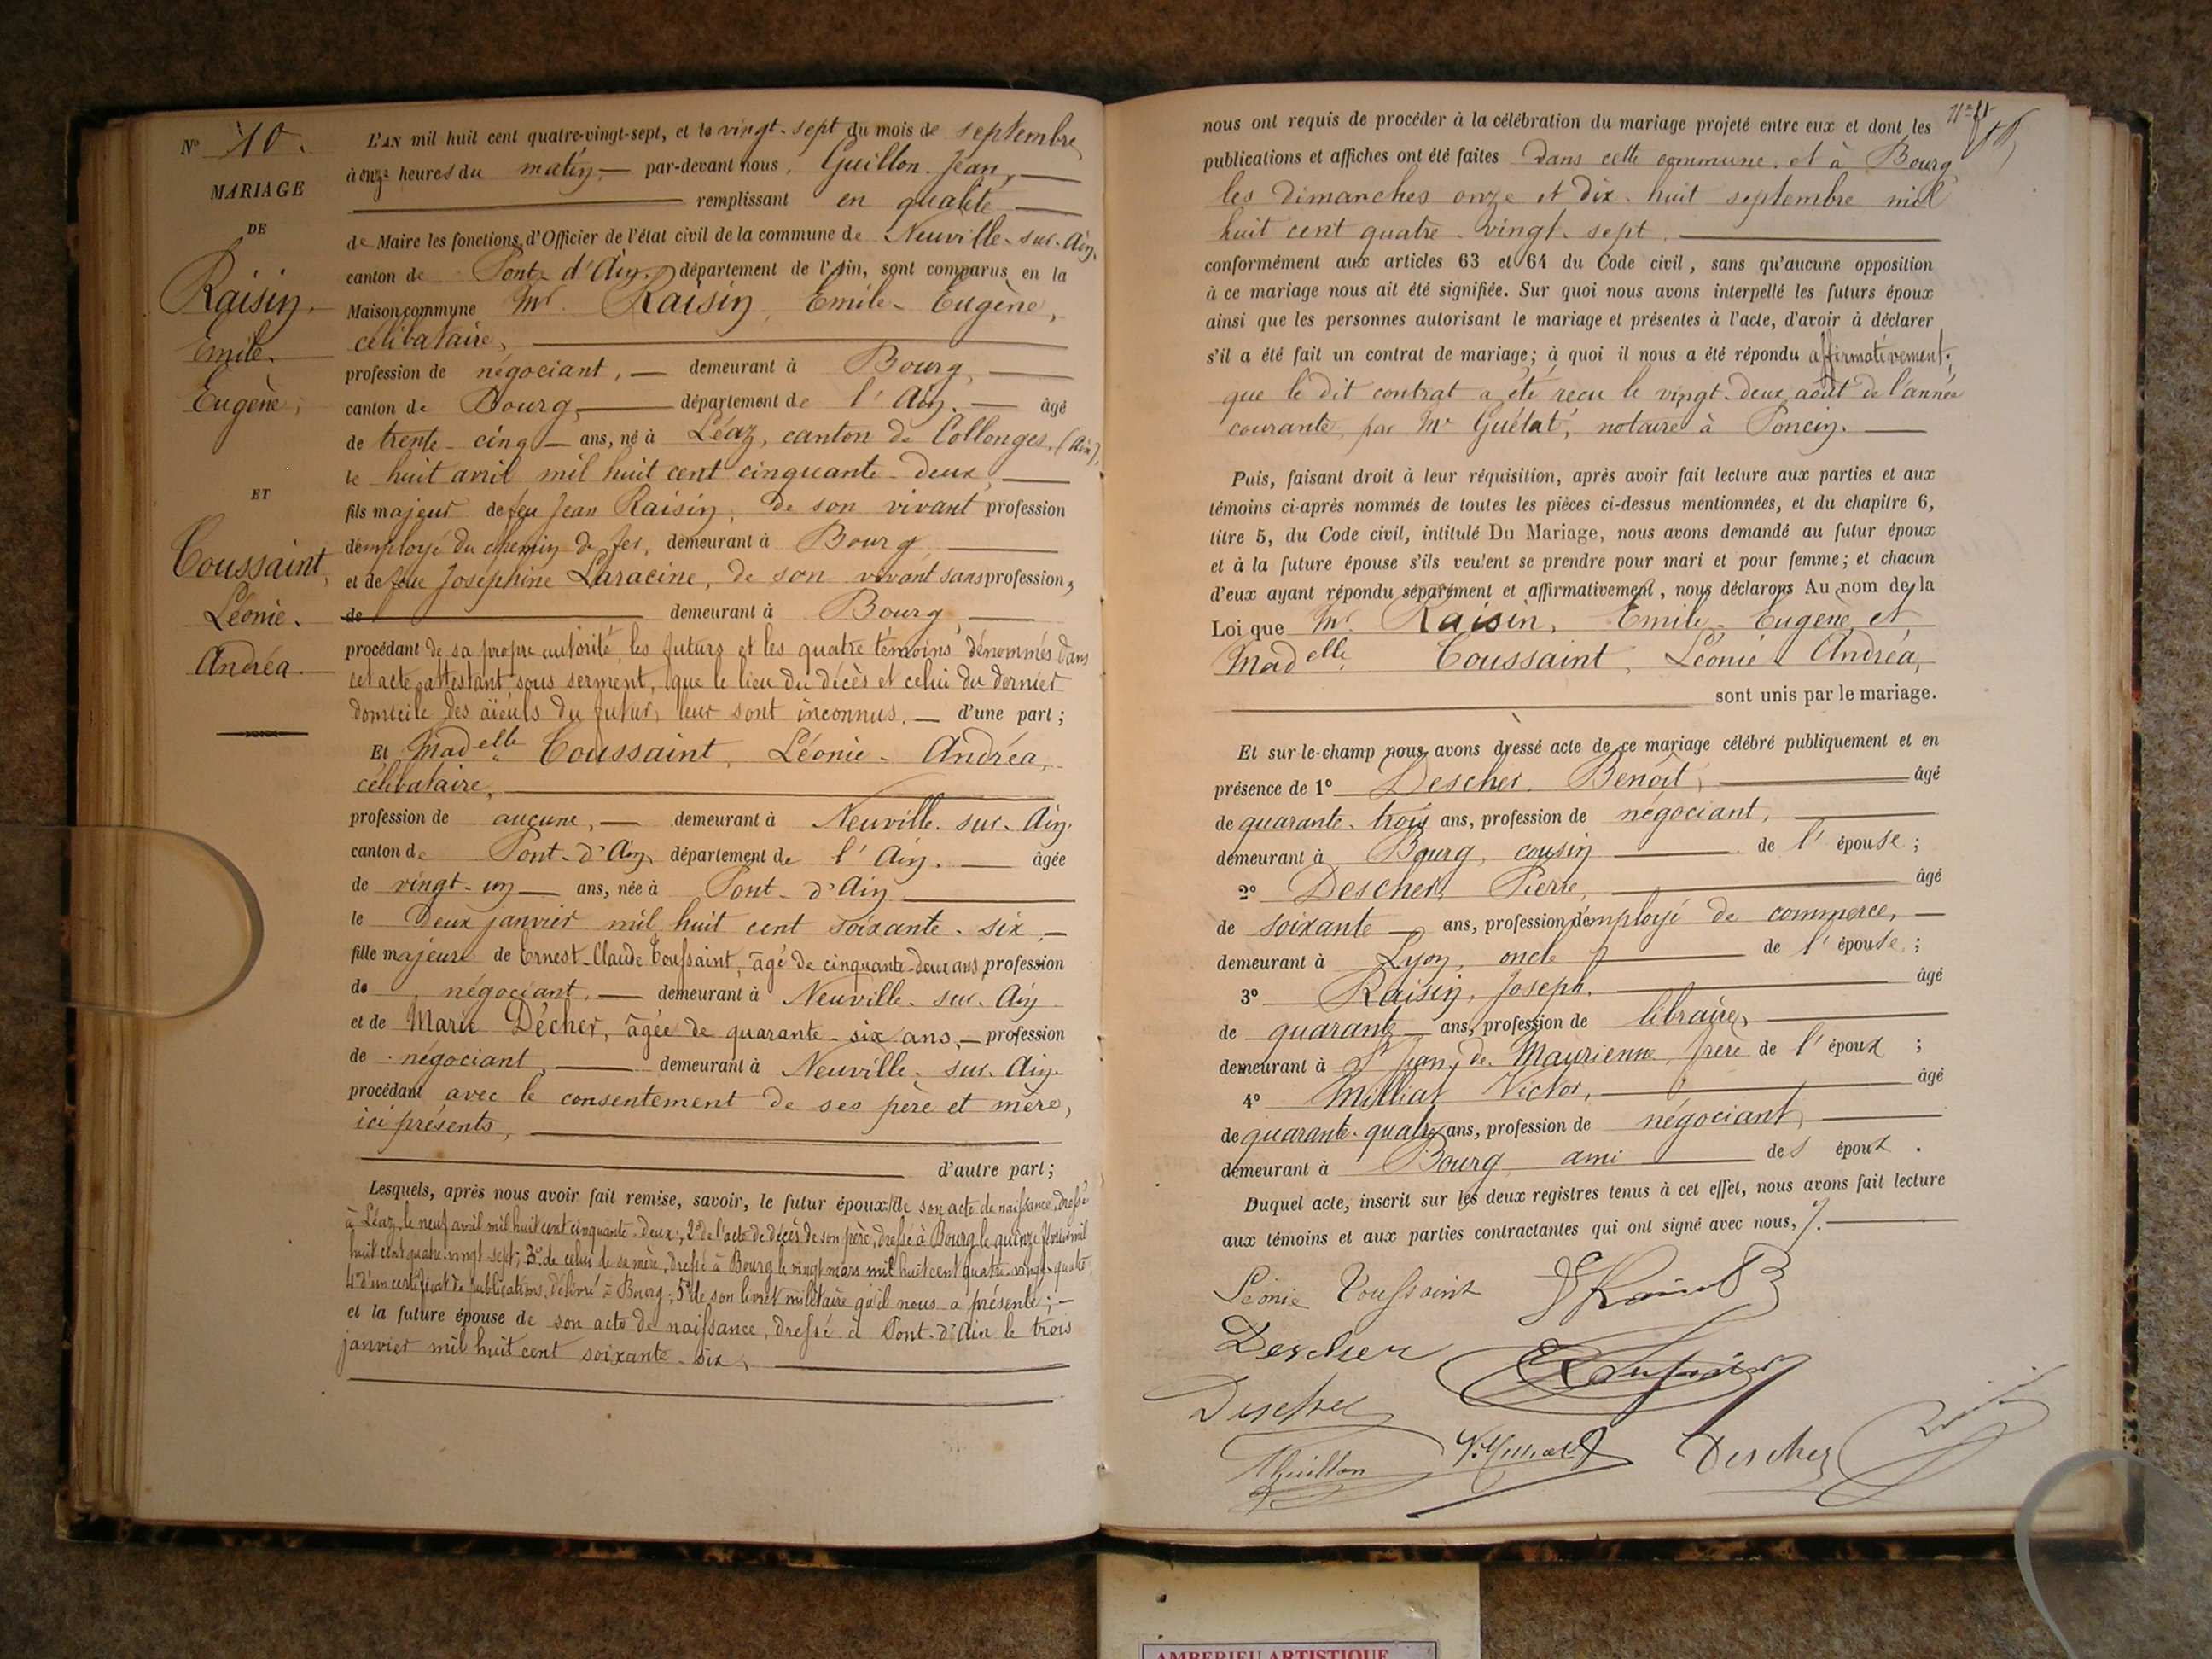 N° 10.
MARIAGE
DE
Raisin,
Emile,
Eugène,
ET
Toussaint,
Léonie.
Andréa.
L'AN mil huit cent quatre-vingt-sept, et le vingt-sept du mois de septembre
à onze heures du matin, par-devant nous, Guillon Jean,
remplissant en qualité
de Maire les fonctions d'Officier de l'état civil de la commune de Neuville-sur-Ain,
canton de Pont d'Ain, département de l'Ain, sont comparus en la
Maison commune Mr. Raisin, Emile-Eugène,
célibataire,
profession de négociant, demeurant à Bourg,
canton de Bourg, département de l'Ain. âgé
de trente-cinq ans, né à Léaz, canton de Collonges, (Ain),
le huit avril mil huit cent cinquante-deux,
fils majeur de feu Jean Raisin, de son vivant profession
d'employé du chemin de fer, demeurant à Bourg
et de feue Joséphine Laracine, de son vivant sans profession,
de demeurant à Bourg
procédant de sa propre autorité, les futurs et les quatre témoins dénommés dans
cet acte attestant sous serment, que le lieu du décès et celui du dernier
domicile des aïeuls du futur, leur sont inconnus. d'une part;
Et Madelle Toussaint, Léonie-Andréa,
célibataire,
profession de aucune, demeurant à Neuville-sur-Ain,
canton de Pont-d'Ain, département de l'Ain. âgée
de vingt-un ans, née à Pont-d'Ain
le deux janvier mil huit cent soixante-six,
fille majeure de Ernest-Claude Toussaint, âgé de cinquante-deux ans, profession
de négociant, demeurant à Neuville-sur-Ain
et de Marie Décher, âgée de quarante-six ans, profession
de négociant, demeurant à Neuville-sur-Ain
procédant avec le consentement de ses père et mère,
ici présents,
d'autre part;
Lesquels, après nous avoir fait remise, savoir, le futur époux: de son acte de naissance, dressé
à Léaz, le neuf avril mil huit cent cinquante-deux; 2° de l'acte de décès de son père, dressé à Bourg le quinze février mil
huit cent quatre-vingt-sept; 3° de celui de sa mère, dressé à Bourg le vingt mars mil huit cent quatre-vingt-quatre;
4° d'un certificat de publications, délivré à Bourg; 5° de son livret militaire qu'il nous a présenté;
et la future épouse de son acte de naissance, dressé à Pont-d'Ain le trois
janvier mil huit cent soixante-six,
nous ont requis de procéder à la célébration du mariage projeté entre eux et dont les
publications et affiches ont été faites dans cette commune et à Bourg
les dimanches onze et dix-huit septembre mil
huit cent quatre-vingt-sept.
conformément aux articles 63 et 64 du Code civil, sans qu'aucune opposition
à ce mariage nous ait été signifiée. Sur quoi nous avons interpellé les futurs époux
ainsi que les personnes autorisant le mariage et présentes à l'acte, d'avoir à déclarer
s'il a été fait un contrat de mariage; à quoi il nous a été répondu affirmativement;
que le dit contrat a été reçu le vingt-deux août de l'année
courante, par Me Guélat, notaire à Poncin.
Puis, faisant droit à leur réquisition, après avoir fait lecture aux parties et aux
témoins ci-après nommés de toutes les pièces ci-dessus mentionnées, et du chapitre 6,
titre 5, du Code civil, intitulé Du Mariage, nous avons demandé au futur époux
et à la future épouse s'ils veulent se prendre pour mari et pour femme; et chacun
d'eux ayant répondu séparément et affirmativement, nous déclarons Au nom de la
Loi que Mr. Raisin, Emile-Eugène, et
Madelle Toussaint, Léonie-Andréa,
sont unis par le mariage.
Et sur-le-champ nous avons dressé acte de ce mariage célébré publiquement et en
présence de 1° Descher, Benoît, âgé
de quarante-trois ans, profession de négociant,
demeurant à Bourg, cousin de l'épouse;
2° Descher, Pierre, âgé
de soixante ans, profession d'employé de commerce,
demeurant à Lyon, oncle de l'épouse;
3° Raisin, Joseph, âgé
de quarante ans, profession de libraire,
demeurant à St Jean de Maurienne, frère de l'époux;
4° Milliat Victor, âgé
de quarante-quatre ans, profession de négociant,
demeurant à Bourg ami des époux.
Duquel acte, inscrit sur les deux registres tenus à cet effet, nous avons fait lecture
aux témoins et aux parties contractantes qui ont signé avec nous,
Léonie Toussaint
Descher
Descher
Guillon
V. Milliat
Descher
AMBERIEU ARTISTIQUE